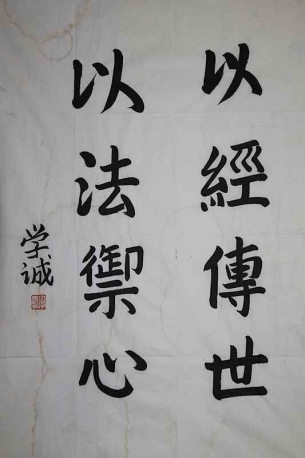 以經傳世
以法禦心
学诚